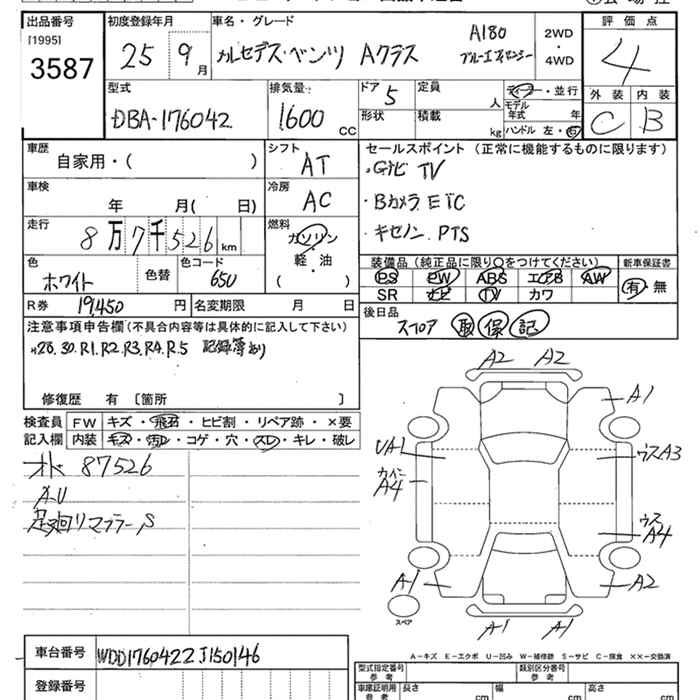 出品番号 初度登録年月 車名・グレード 評価点
[1995]
3587
25 9月
メルセデス・ベンツ Aクラス
A180
ブルーエフィシェンシー
2WD
・
4WD
4
型式 排気量 ドア 定員 ディーラー・並行
DBA-176042 1600 cc
5
人
モデル年式 年
形状 積載 kg
ハンドル 左・右
外装 内装
C B
車歴 シフト
自家用・( )
AT
セールスポイント (正常に機能するものに限ります)
・ナビ TV
・Bカメラ ETC
・キセノン. PTS
車検 冷房
年 月( 日)
AC
走行 燃料
8万7千526 km
ガソリン
・
軽・油
( )
色 色替 色コード
ホワイト 650
装備品(純正品に限り○をつけてください) 新車保証書
PS PW ABS エアB AW
SR ナビ TV カワ
有・無
R券 19,450 円 名変期限 月 日
後日品
スペア 取 保 記
注意事項申告欄(不具合内容等は具体的に記入して下さい)
H28.30.R1.R2.R3.R4.R.5 記録簿あり
修復歴 有 [箇所 ]
検査員記入欄
FW キズ・飛石・ヒビ割・リペア跡・×要
内装 キズ・汚レ・コゲ・穴・スレ・キレ・破レ
87526
AU
足廻リマフラーS
A2 A2
A1
UA1
ウスA3
カバー
A4
ウス
A4
A1
A2
スペア
A1 A1
A-キズ E-エクボ U-凹み W-補修跡 S-サビ C-腐食 ××-交換済
車台番号 WDD1760422J150146
登録番号
型式指定番号
参考
類別区分番号
参考
車庫証明用
参考
長さ cm 幅 cm 高さ cm